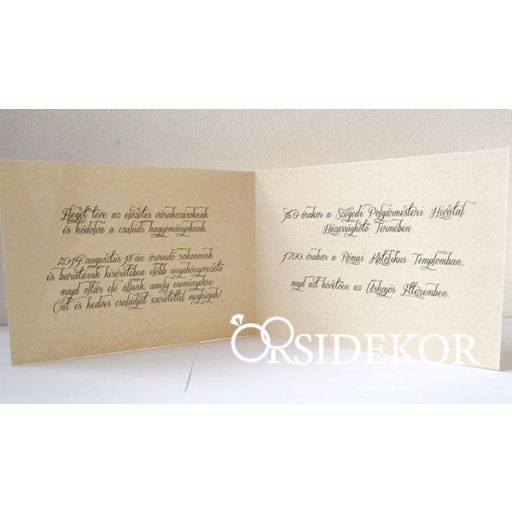 Eleget téve az előzetes várakozásoknak
és hódolva a családi hagyományoknak,
2014 augusztus 18-án örvendő rokonaink
és barátaink kíséretében előbb anyakönyvvezető
majd oltár elé állunk, amely eseményekre
Önt és kedves családját szeretettel meghívjuk!
órakor a Szegedi Polgármesteri Hivatal
Házasságkötő Termében
1700 órakor a Római Katolikus Templomban,
majd azt követően az Űrhajós Étteremben.
ORSIDEKOR